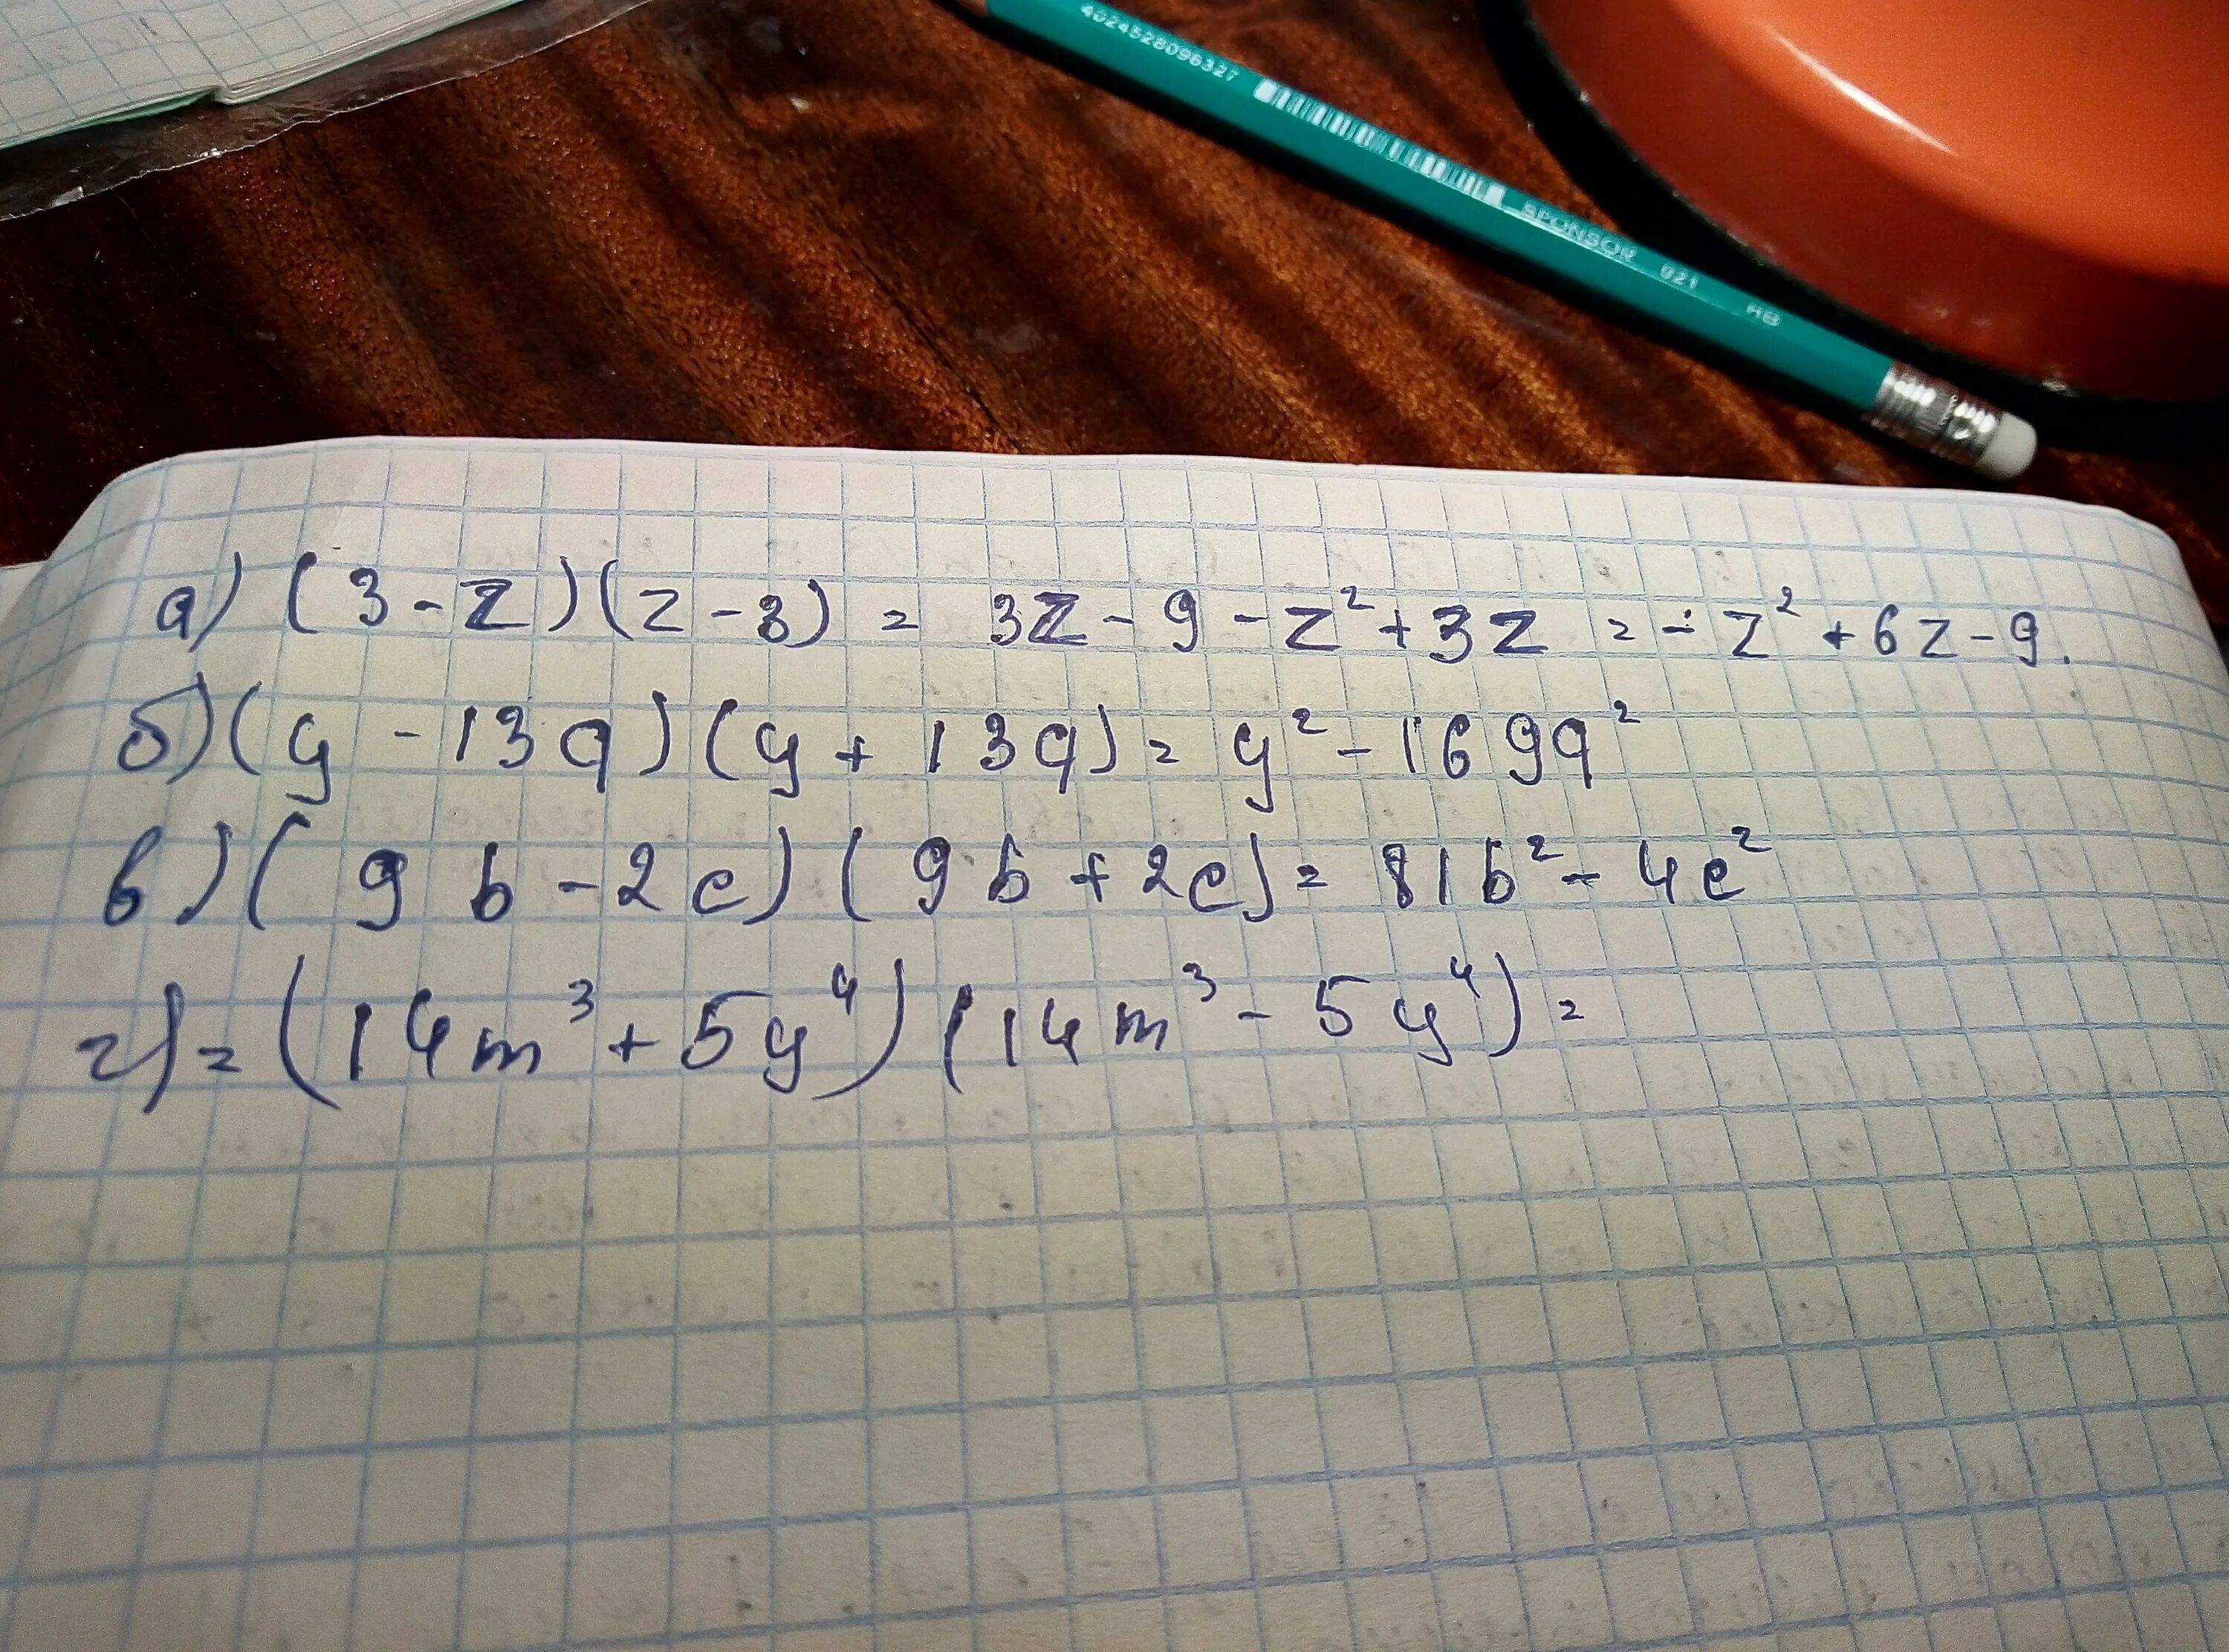 4024528096327 SPONSOR 021 HB
а) (3-z)(z-3) = 3z-9-z²+3z = -z²+6z-9.
б) (y-13q)(y+13q) = y²-169q²
в) (9b-2c)(9b+2c) = 81b²-4c²
г) = (14m³+5y⁴)(14m³-5y⁴) =